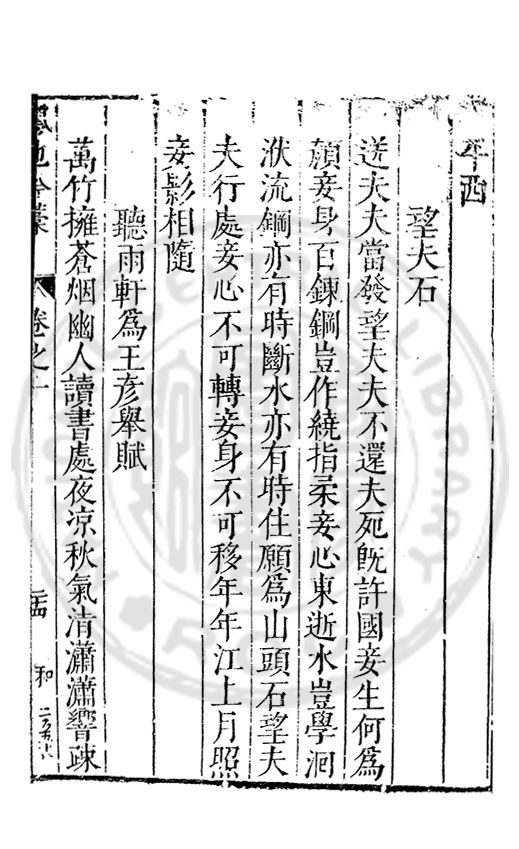 年酉
望夫石
送夫夫當發望夫夫不還夫死旣許國妾生何爲
顔妾身百鍊鋼豈作繞指柔妾心東逝水豈學洄
洑流鋼亦有時斷水亦有時住願爲山頭石望夫
夫行處妾心不可轉妾身不可移年年江上月照
妾影相隨
聽雨軒爲王彥舉賦
萬竹擁蒼烟幽人讀書處夜凉秋氣清瀟瀟響疎
卷之一
和